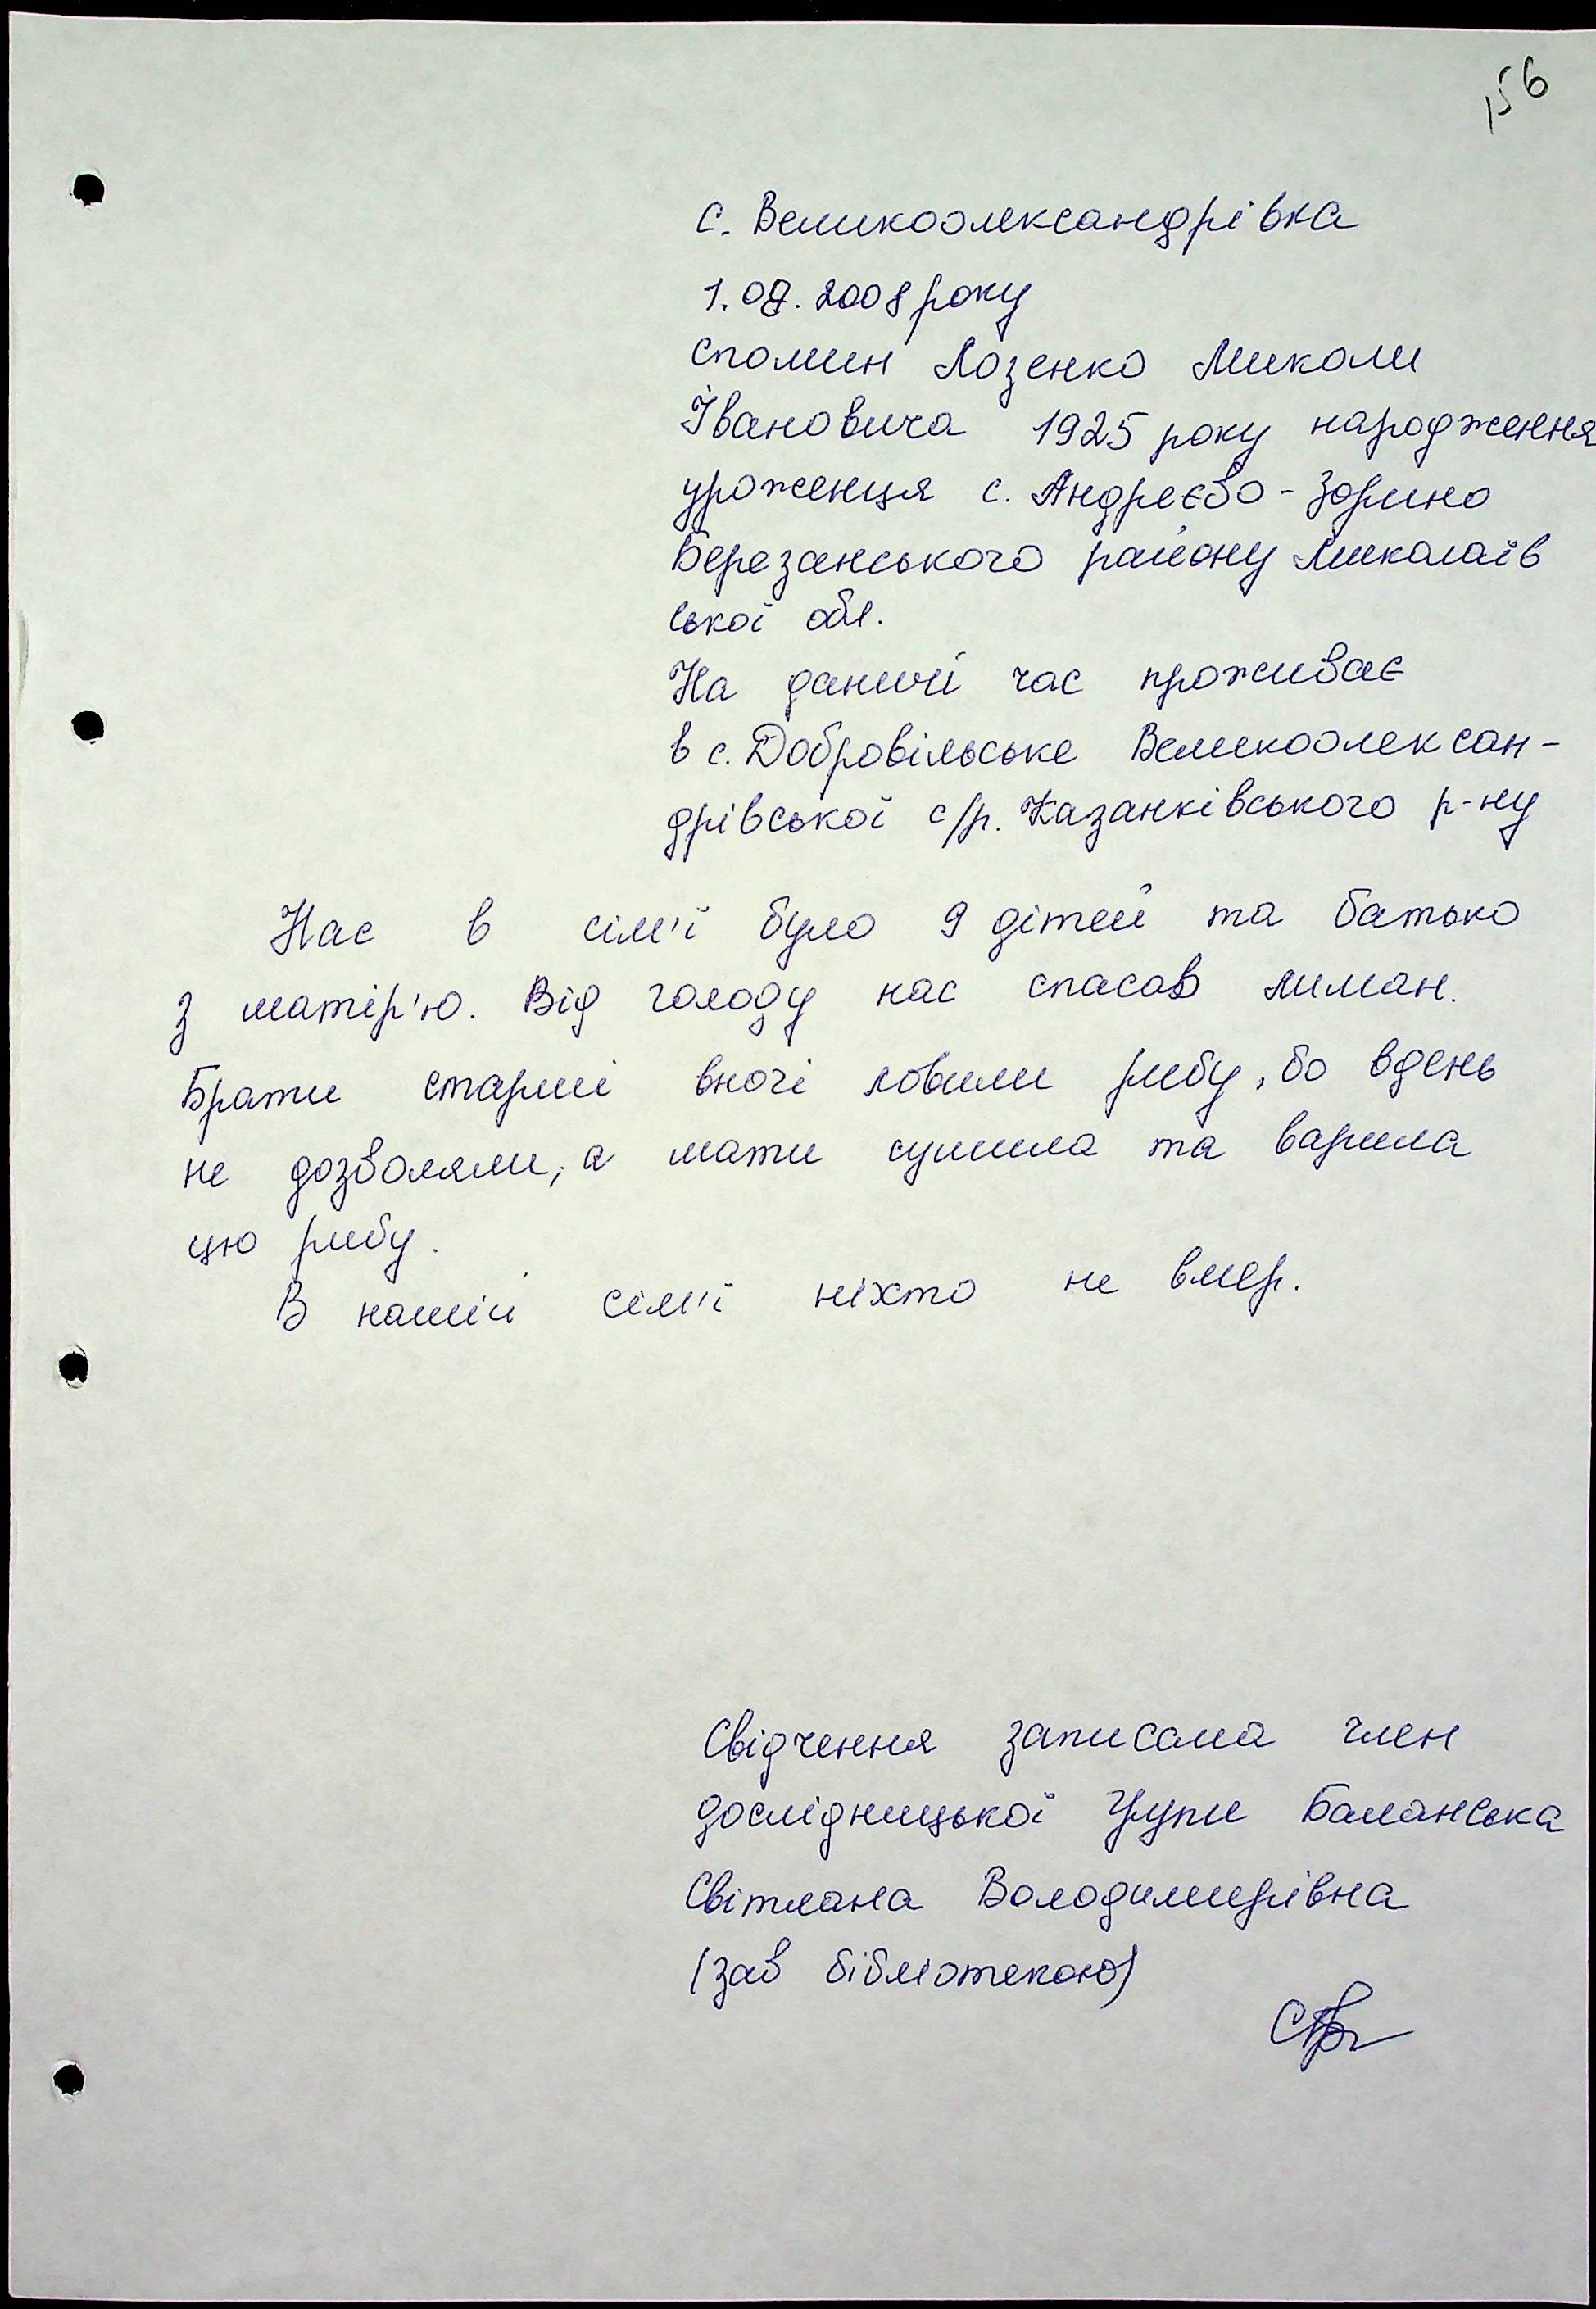 156
с. Великоолександрівка
1.08.2008 року
спомин Лозенко Миколи
Івановича 1925 року народження
уроженця с. Андреєво-Зорино
Березанського району Миколаїв
ської обл.
На даний час проживає
в с. Добровільське Великоолексан-
дрівської с/р. Казанківського р-ну
Нас в сім'ї було 9 дітей та батько
з матір'ю. Від голоду нас спасав лиман.
Брати старші вночі ловили рибу, бо вдень
не дозволяли, а мати сушила та варила
цю рибу.
В нашій сім'ї ніхто не вмер.
Свідчення записала член
дослідницької групи Баланська
Світлана Володимирівна
(зав бібліотекою)